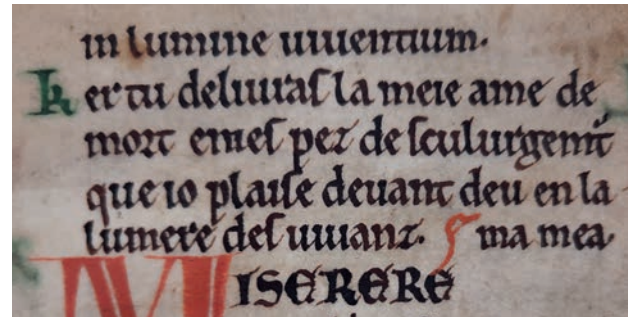 in lumine uiuentium.
Ker tu deliuras la meie ame de
mort e mes pez de sculurgemt̃
que io plaise deuant deu en la
lumere des uiuanz. ma mea.
MISERERE